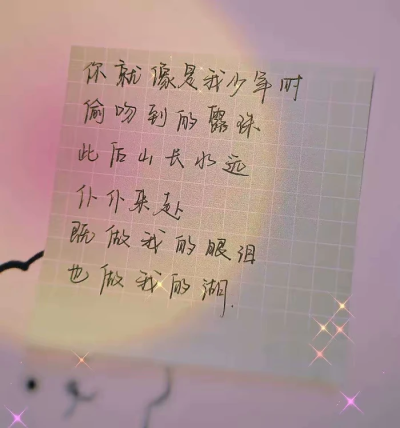 你就像是我少年时
偷吻到的露珠
此后山长水远
仆仆来赴
既做我的眼泪
也做我的湖.